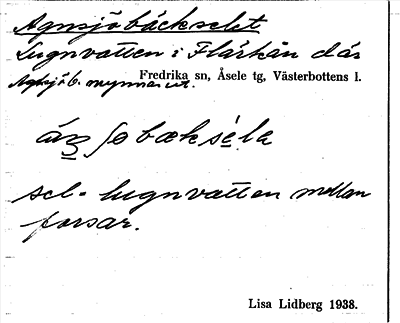 Agnsjöbäckselet
Lugnvatten i Flärkån där
Agnsjöb. mynnar ut.
Fredrika sn, Åsele tg, Västerbottens l.
sel = lugnvatten mellan
forsar.
Lisa Lidberg 1938.